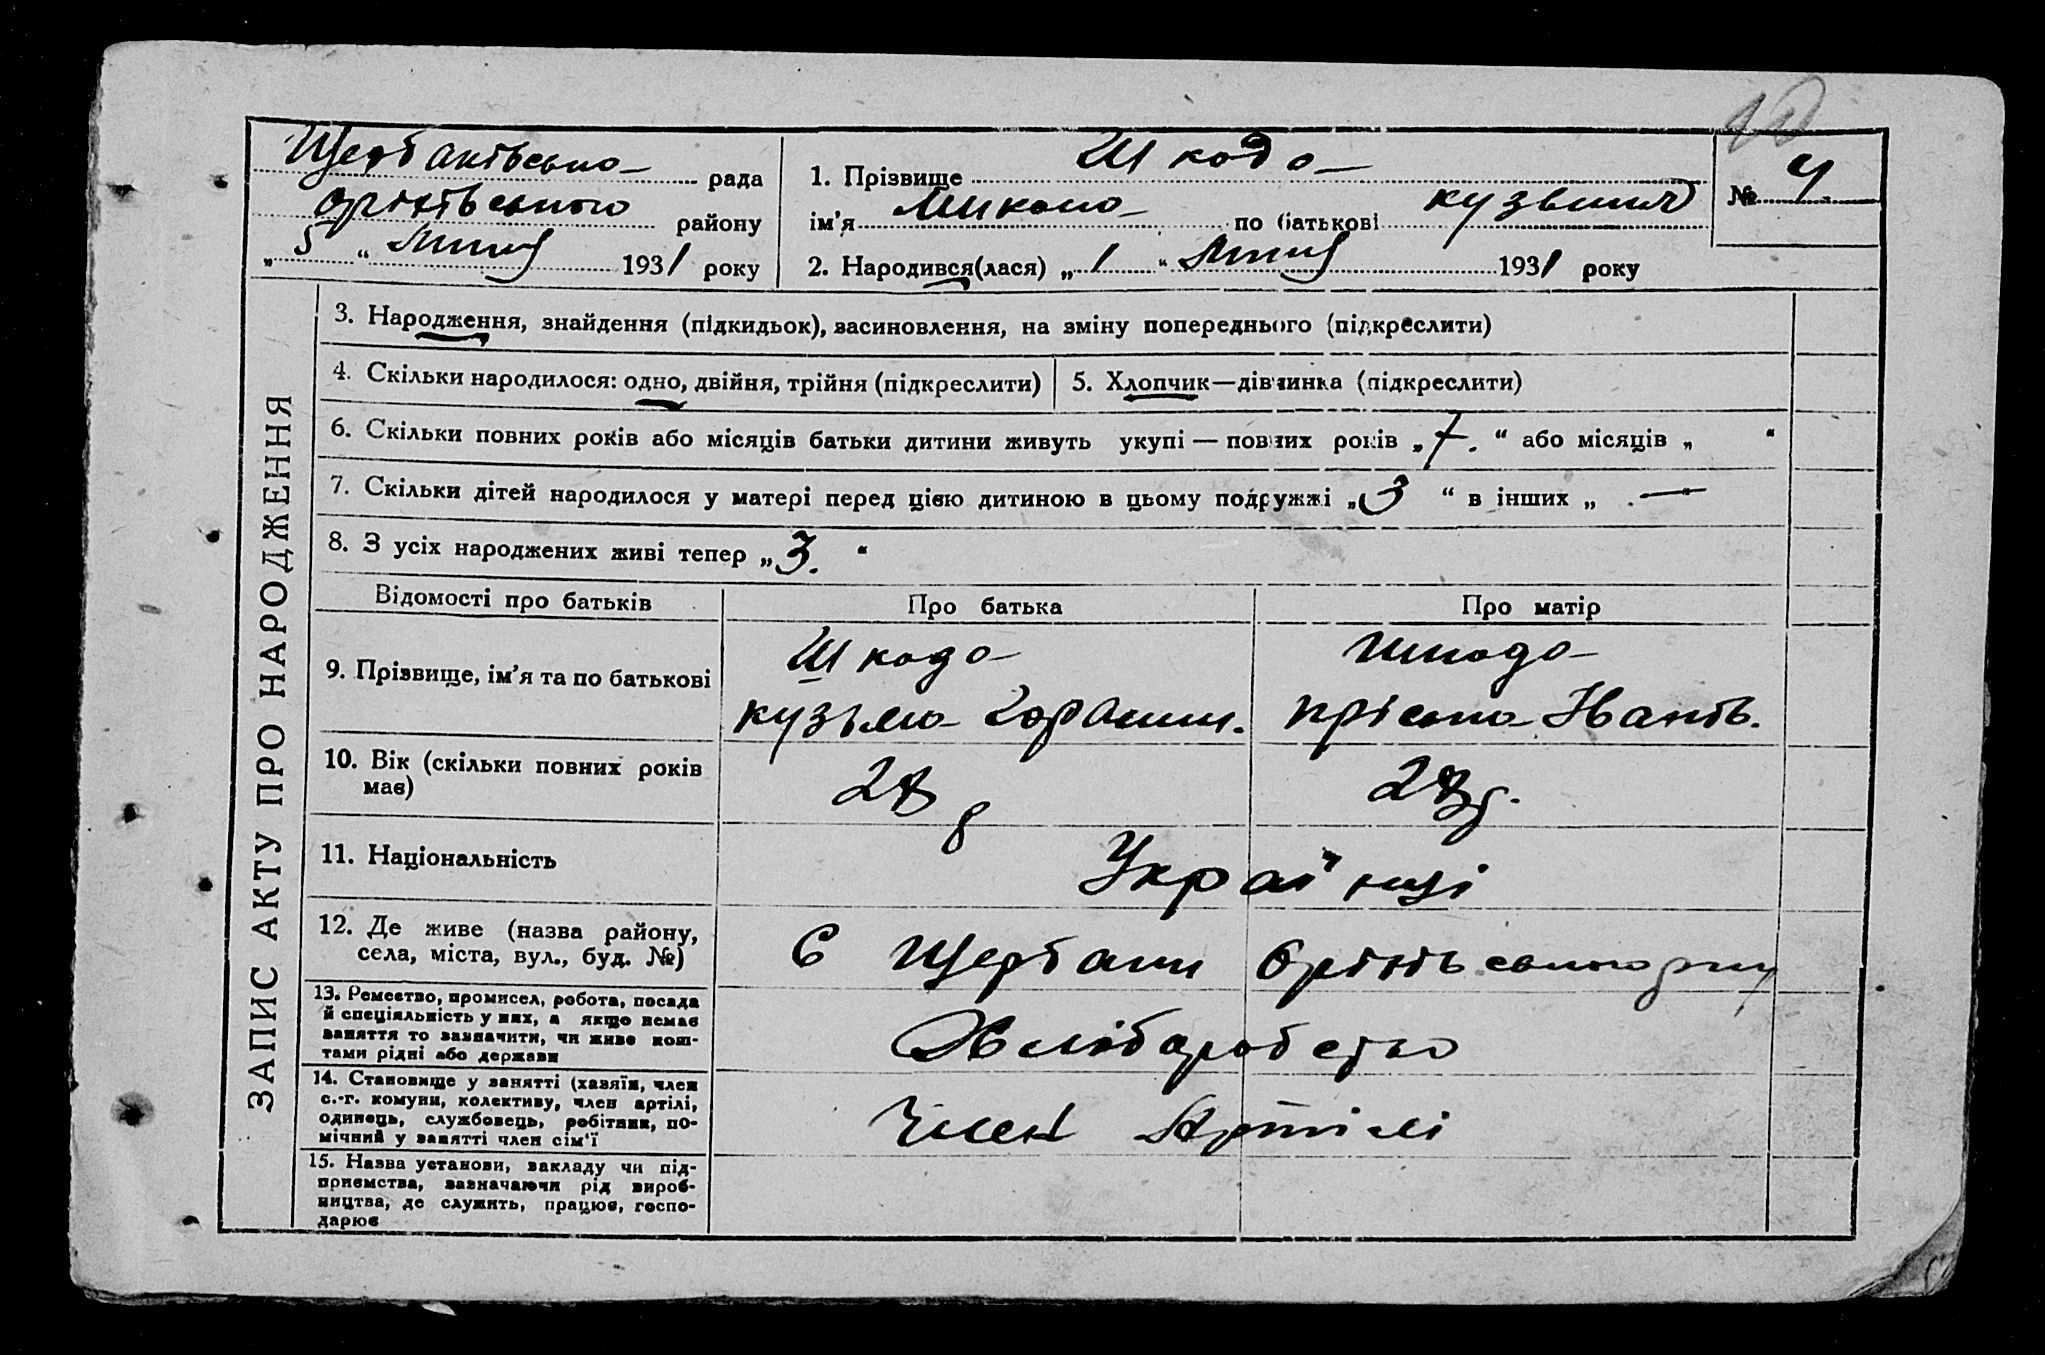 Щербаківсько рада
Оріхівського району
„ 5 “ Липня 1931 року
1. Прізвище Шкода
ім'я Микола по батькові Кузьмич
2. Народився(лася) „ 1 “ Липня 1931 року
№ 4.
ЗАПИС АКТУ ПРО НАРОДЖЕННЯ
3. Народження, знайдення (підкидьок), засиновлення, на зміну попереднього (підкреслити)
4. Скільки народилося: одно, двійня, трійня (підкреслити)
5. Хлопчик—дівчинка (підкреслити)
6. Скільки повних років або місяців батьки дитини живуть укупі — повних років „ 7. “ або місяців „ “
7. Скільки дітей народилося у матері перед цією дитиною в цьому подружжі „ 3 “ в інших „ —
8. З усіх народжених живі тепер „ 3. “
Відомості про батьків
Про батька
Про матір
9. Прізвище, ім'я та по батькові
Шкода
Кузьма
Шкода
Пріська Іванів.
10. Вік (скільки повних років
має)
11. Національність
Українці
12. Де живе (назва району,
села, міста, вул., буд. №)
С Щербаки Оріхівського р-ну
13. Ремество, промисел, робота, посада
й спеціяльність у них, а якщо немає
заняття то зазначити, чи живе кош-
тами рідні або держави
Хліборобство
14. Становище у занятті (хазяїн, член
с.-г. комуни, колективу, член артілі,
одинець, службовець, робітник, по-
мічний у занятті член сім'ї
Член Артілі
15. Назва установи, закладу чи під-
приємства, зазначаючи рід вироб-
ництва, де служить, працює, госпо-
дарює